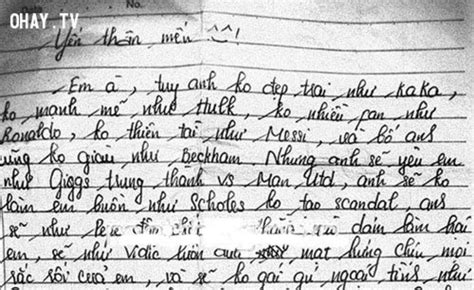 OHAY.TV
No.
Yến thân mến ^^!
Em à, tuy anh ko đẹp trai như KaKa,
ko mạnh mẽ như Hulk, ko nhiều fan như
Ronaldo, ko thiên tài như Messi, và bố anh
cũng ko giàu như Beckham Nhưng anh sẽ yêu em
như Giggs trung thành vs Man Utd, anh sẽ ko
làm em buồn như Scholes ko tạo scandal, anh
sẽ như Pepe đốn dám làm hại
em, sẽ như Vidic luôn mạt hứng chịu mọi
sắc sôi của em, và sẽ ko gái gú ngoài tình như